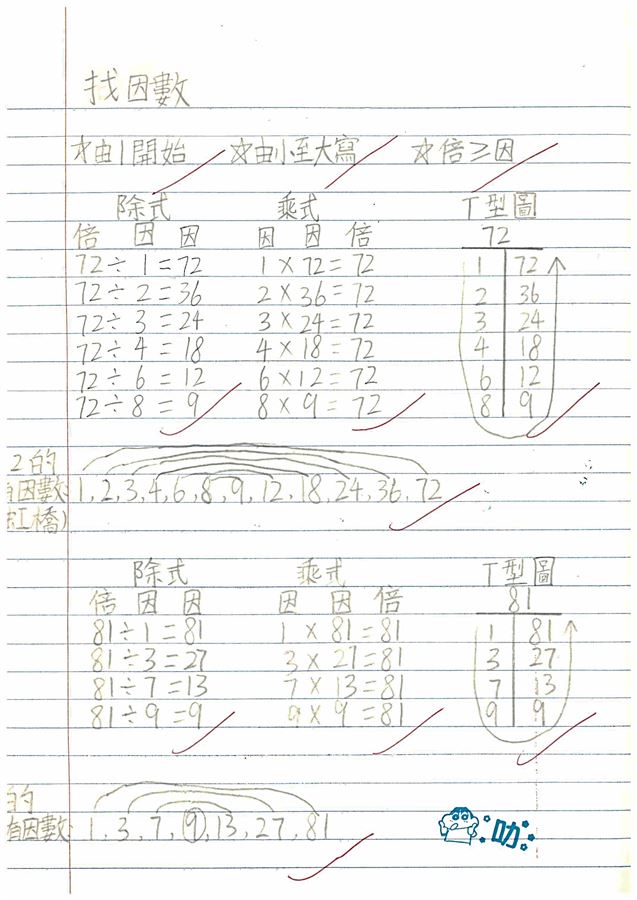 找因數
☆由1開始 ☆由小至大寫 ☆倍≥因
除式 乘式 T型圖
倍 因 因 因 因 倍 72
72÷1=72 1×72=72 1 72
72÷2=36 2×36=72 2 36
72÷3=24 3×24=72 3 24
72÷4=18 4×18=72 4 18
72÷6=12 6×12=72 6 12
72÷8=9 8×9=72 8 9
2的
因數: 1,2,3,4,6,8,9,12,18,24,36,72
虹橋)
除式 乘式 T型圖
倍 因 因 因 因 倍 81
81÷1=81 1×81=81 1 81
81÷3=27 3×27=81 3 27
81÷7=13 7×13=81 7 13
81÷9=9 9×9=81 9 9
的
有因數: 1,3,7,9,13,27,81
叻